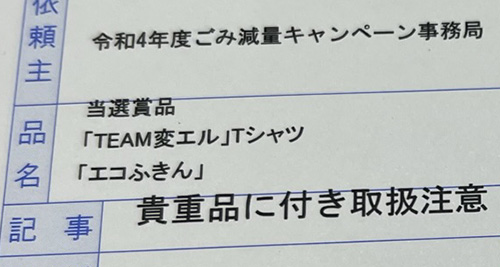 依頼主
令和4年度ごみ減量キャンペーン事務局
品名
当選賞品
「TEAM変エル」Tシャツ
「エコふきん」
記事
貴重品に付き取扱注意